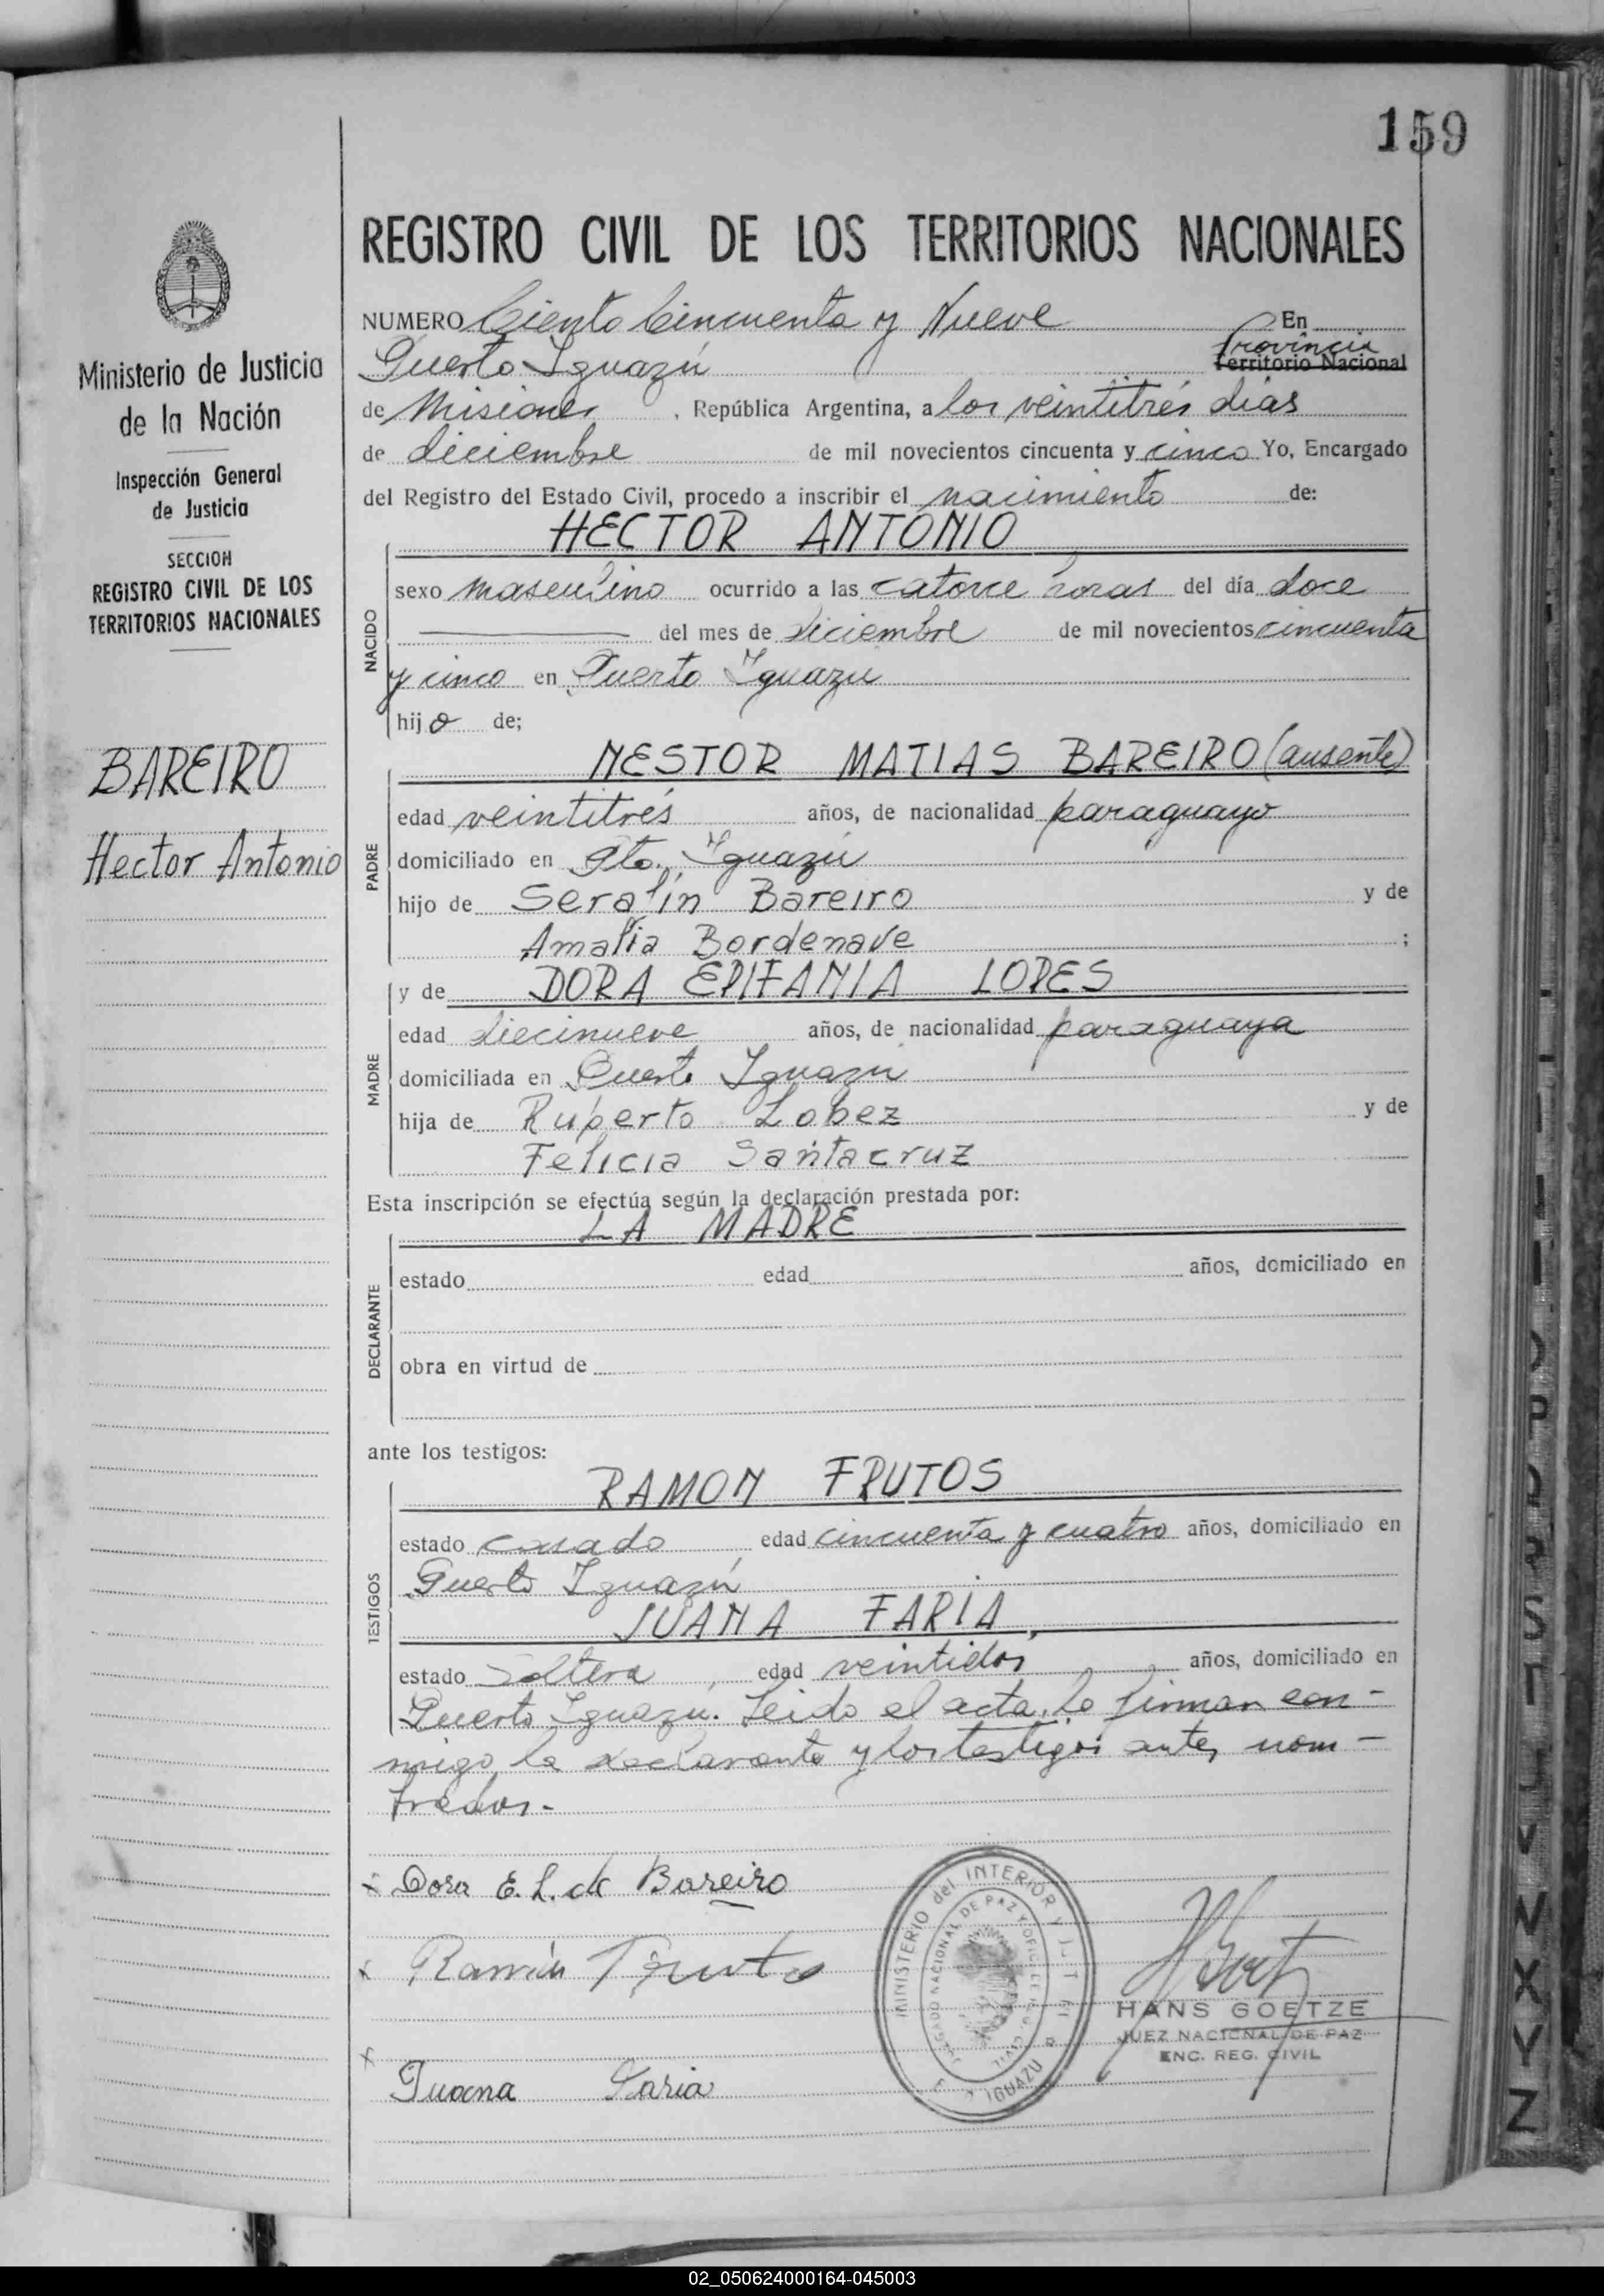 159
REGISTRO CIVIL DE LOS TERRITORIOS NACIONALES
Ministerio de Justicia
de la Nación
Inspección General
de Justicia
SECCION
REGISTRO CIVIL DE LOS
TERRITORIOS NACIONALES
BAREIRO
Hector Antonio
NUMERO Ciento Cincuenta y Nueve En
Puerto Iguazú Provincia Territorio Nacional
de Misiones, República Argentina, a los veintitrés días
de diciembre de mil novecientos cincuenta y cinco Yo, Encargado
del Registro del Estado Civil, procedo a inscribir el nacimiento de:
NACIDO
HECTOR ANTONIO
sexo masculino ocurrido a las catorce horas del día doce
del mes de diciembre de mil novecientos cincuenta
y cinco en Puerto Iguazu
hijo de;
PADRE
NESTOR MATIAS BAREIRO (ausente)
edad veintitrés años, de nacionalidad paraguayo
domiciliado en Pto. Iguazú
hijo de Serafín Bareiro y de
Amalia Bordenave ;
MADRE
y de DORA EPIFANIA LOPES
edad diecinueve años, de nacionalidad paraguaya
domiciliada en Puerto Iguazú
hija de Ruperto Lobez y de
Felicia Santacruz
Esta inscripción se efectúa según la declaración prestada por:
DECLARANTE
LA MADRE
estado edad años, domiciliado en
obra en virtud de
ante los testigos:
TESTIGOS
RAMON FRUTOS
estado casado, edad cincuenta y cuatro años, domiciliado en
Puerto Iguazú
JUANA FARIA,
estado soltera, edad veintidos años, domiciliado en
Puerto Iguazú. Leido el acta, la firman con-
migo, la declarante y los testigos antes nom-
brados.-
x Dora E. L. de Bareiro
x Ramón Frutos
x Juana Faria
MINISTERIO del INTERIOR Y
JUZGADO NACIONAL DE PAZ Y
CIVIL
IGUAZU
HANS GOETZE
JUEZ NACIONAL DE PAZ
ENC. REG. CIVIL
V
X
Y
Z
02_050624000164-045003